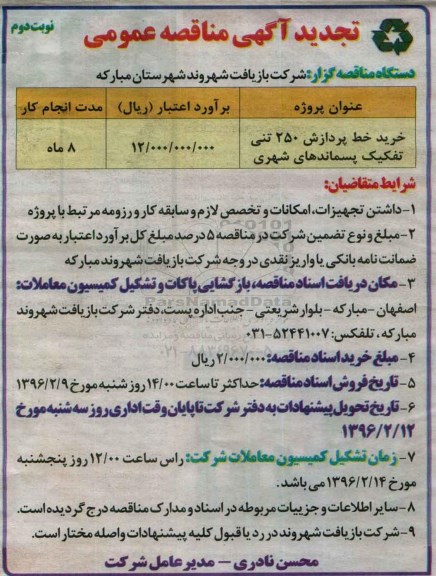 تجدید آگهی مناقصه عمومی
نوبت دوم
دستگاه مناقصه گزار: شرکت بازیافت شهروند شهرستان مبارکه
عنوان پروژه
برآورد اعتبار (ریال)
مدت انجام کار
خرید خط پردازش ۲۵۰ تنی
تفکیک پسماندهای شهری
۱۲/۰۰۰/۰۰۰/۰۰۰
۸ ماه
شرایط متقاضیان:
۱- داشتن تجهیزات، امکانات و تخصص لازم و سابقه کار و رزومه مرتبط با پروژه
۲- مبلغ و نوع تضمین شرکت در مناقصه ۵ درصد مبلغ کل برآورد اعتبار به صورت
ضمانت نامه بانکی یا واریز نقدی در وجه شرکت بازیافت شهروند مبارکه
۳- مکان دریافت اسناد مناقصه، بازگشایی پاکات و تشکیل کمیسیون معاملات:
اصفهان - مبارکه - بلوار شریعتی - جنب اداره پست، دفتر شرکت بازیافت شهروند
مبارکه، تلفکس: ۵۲۴۴۱۰۰۷-۰۳۱
۴- مبلغ خرید اسناد مناقصه: ۲/۰۰۰/۰۰۰ ریال
۵- تاریخ فروش اسناد مناقصه: حداکثر تا ساعت ۱۴/۰۰ روز شنبه مورخ ۱۳۹۶/۲/۹
۶- تاریخ تحویل پیشنهادات به دفتر شرکت تا پایان وقت اداری روز سه شنبه مورخ
۱۳۹۶/۲/۱۲
۷- زمان تشکیل کمیسیون معاملات شرکت: راس ساعت ۱۲/۰۰ روز پنجشنبه
مورخ ۱۳۹۶/۲/۱۴ می باشد.
۸- سایر اطلاعات و جزییات مربوطه در اسناد و مدارک مناقصه درج گردیده است.
۹- شرکت بازیافت شهروند در رد یا قبول کلیه پیشنهادات واصله مختار است.
محسن نادری - مدیر عامل شرکت
ParsNamadData